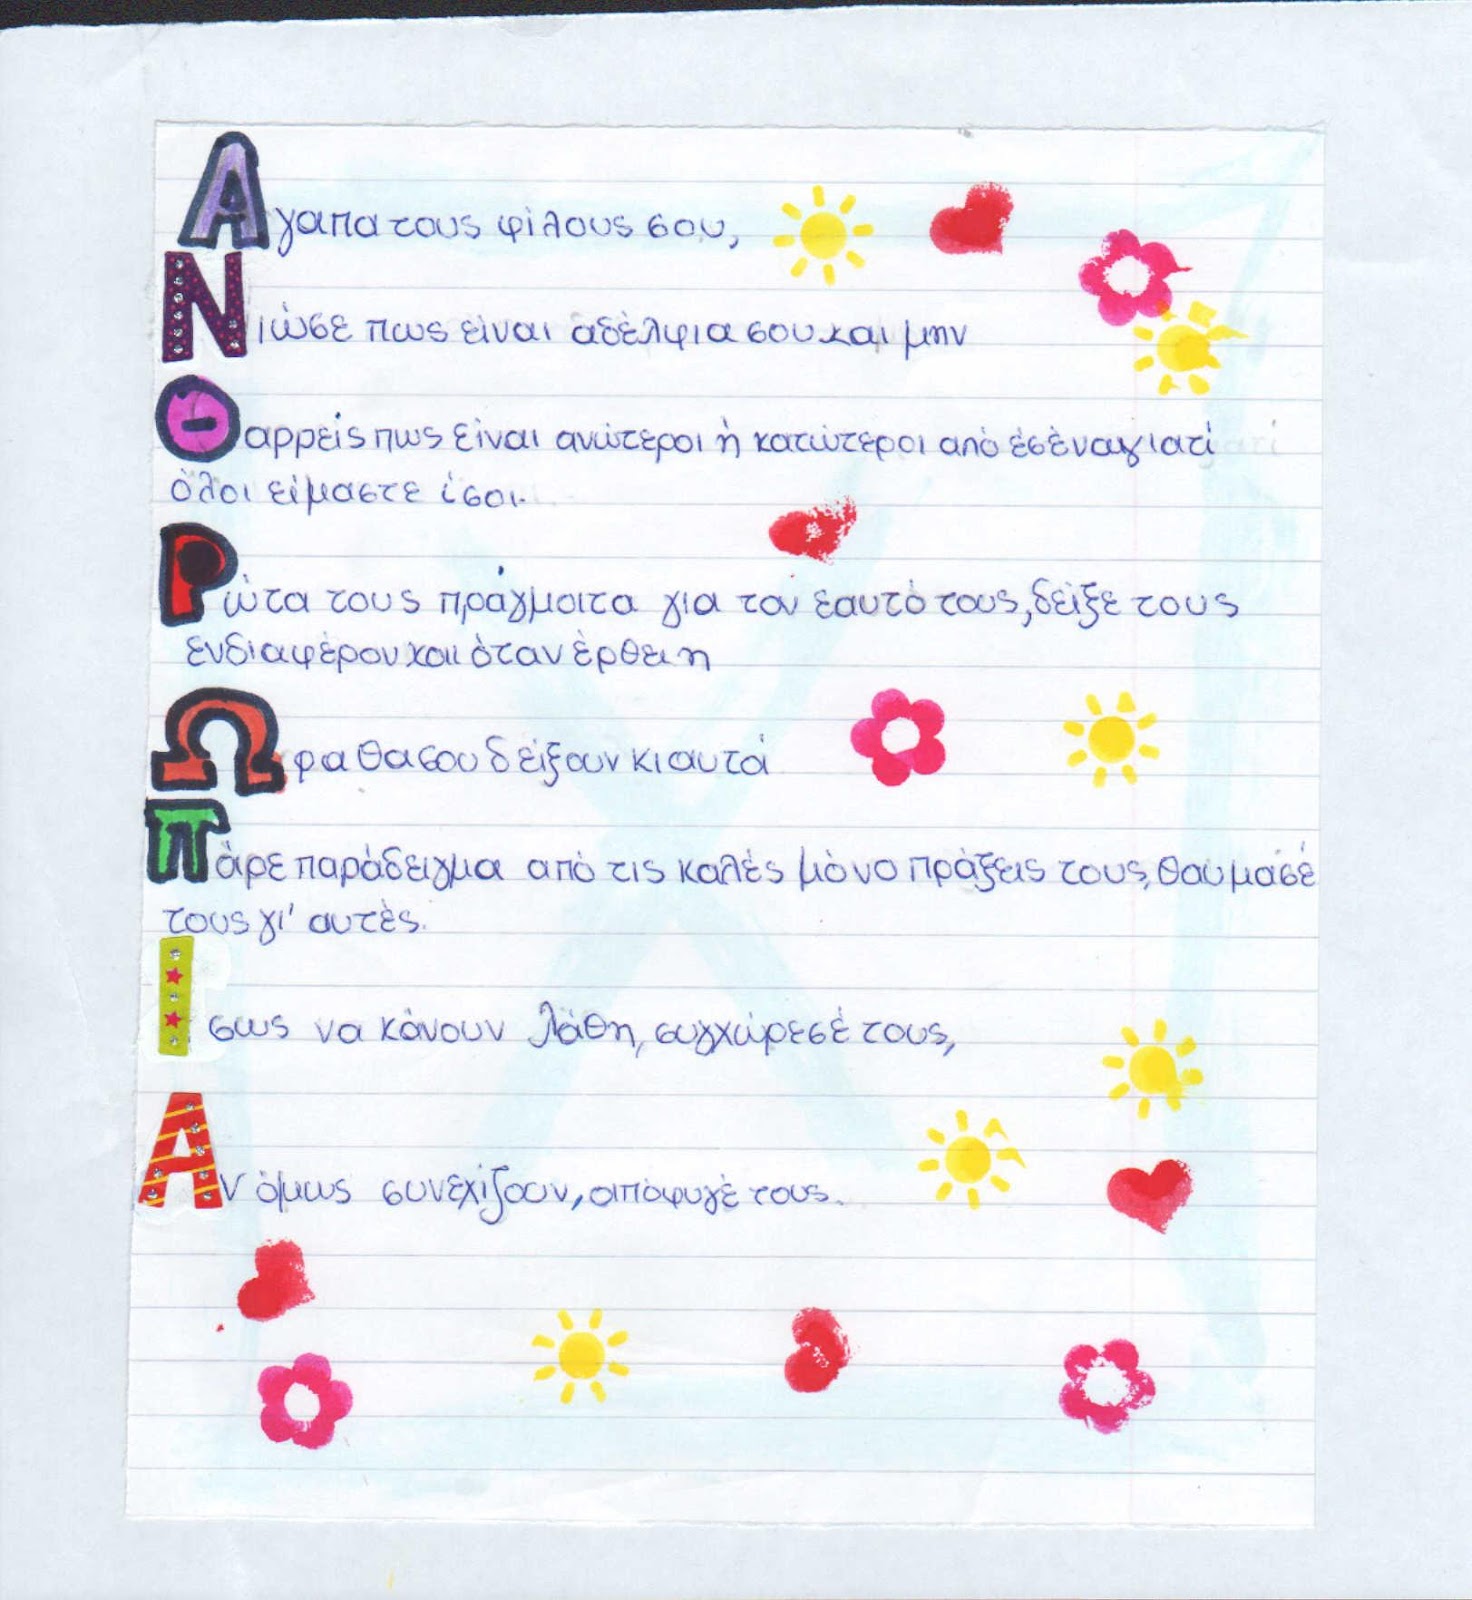 Αγαπα τους φίλους σου,
Νιώσε πως είναι αδέλφια σου και μην
Θαρρείς πως είναι ανώτεροι ή κατώτεροι από εσένα γιατί
όλοι είμαστε ίσοι.
Ρώτα τους πράγματα για τον εαυτό τους, δείξε τους
ενδιαφέρον και όταν έρθει η
Ωρα θα σου δείξουν κι αυτά
Πάρε παράδειγμα από τις καλές μόνο πράξεις τους, θαύμασέ
τους γι' αυτές.
Ισως να κάνουν λάθη, συγχώρεσέ τους,
Αν όμως συνεχίζουν, απόφυγέ τους.